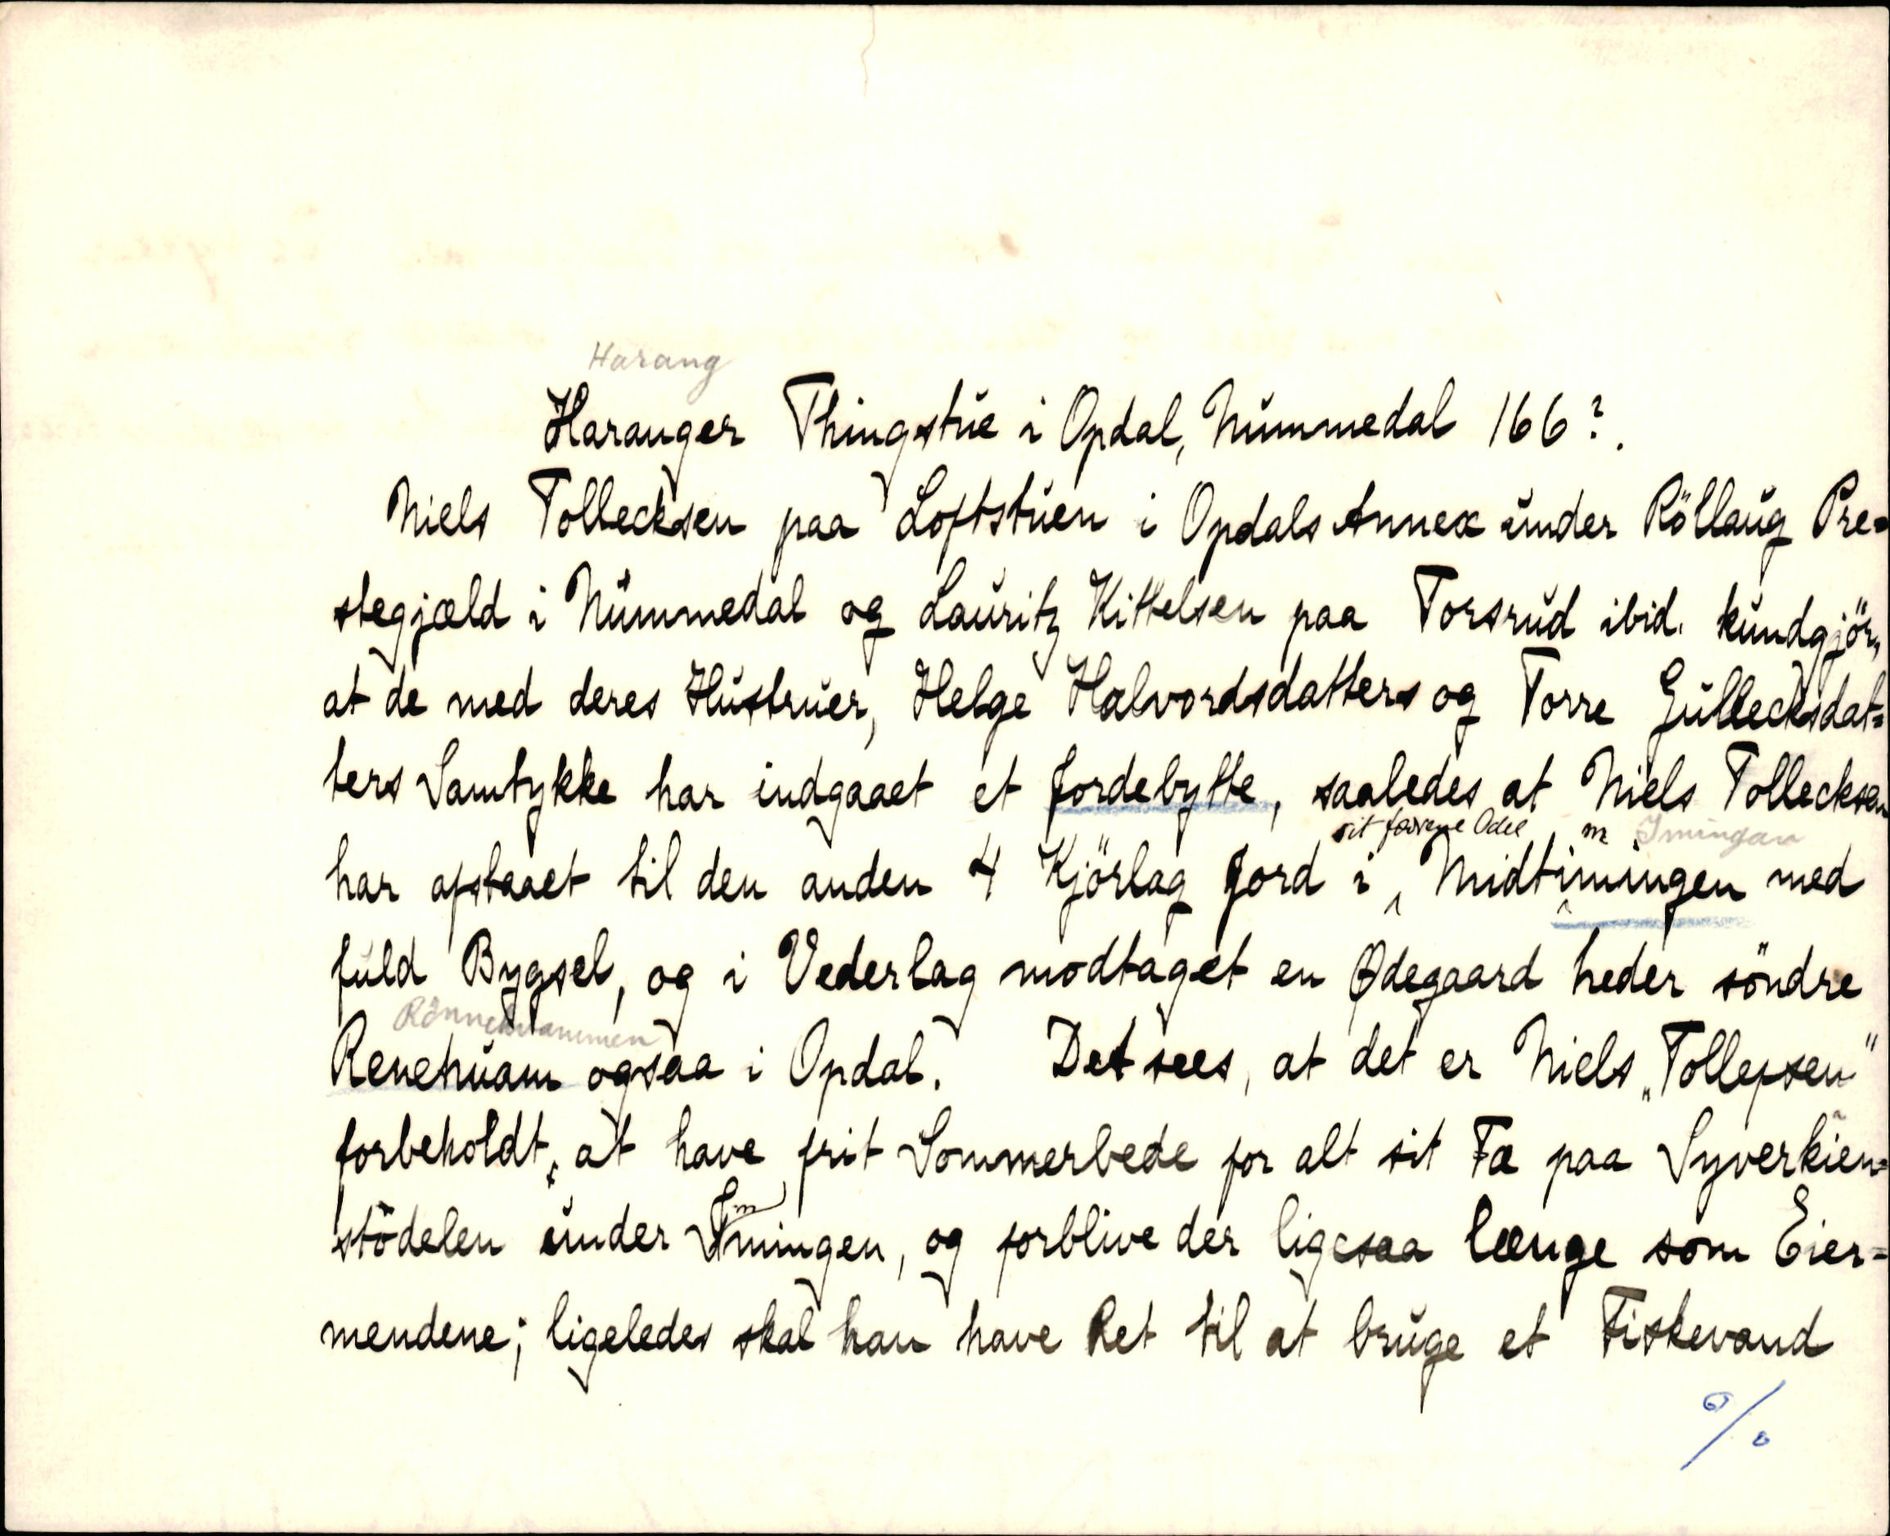 Harang
Haranger Thingstue i Opdal, Nummedal 166?.
Niels Tollecksen paa Loftstuen i Opdals Annex under Röllaug Pre=
stegjæld i Nummedal og Lauritz Kittelsen paa Torsrud ibid. kundgjör,
at de med deres Hustruer, Helge Halvordsdatters og Torre Gullecksdat=
ters Samtykke har indgaaet et Jordebytte, saaledes at Niels Tollecksen
sit farene Odel, m Imingan
har afstaaet til den anden 4 Kjörlag Jord i Midtimingen med
fuld Bygsel, og i Vederlag modtaget en Ödegaard heder söndre
Rönnehvammen
Renehuam ogsaa i Opdal. Det sees, at det er Niels „Tollefsen"
forbeholdt, at have frit Sommerbede for alt sit Fæ paa Syverkien=
stödelen under Imingen, og forblive der ligesaa længe som Eier=
mendene; ligeledes skal han have Ret til at bruge et Fiskevand